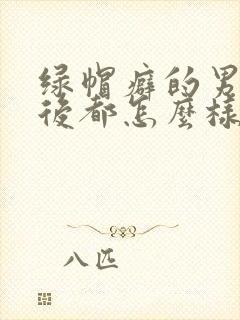 绿帽癖的男
後都怎麼樣
八匹